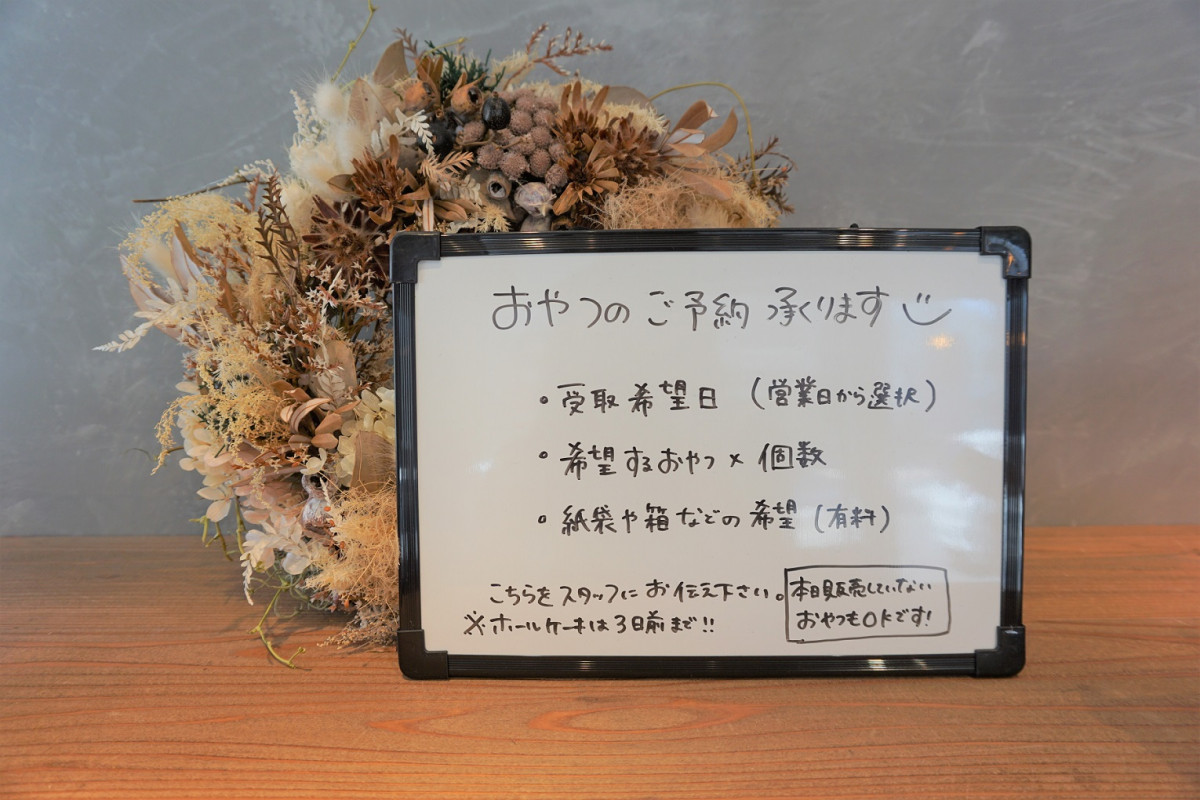 おやつのご予約承ります
・受取希望日（営業日から選択）
・希望するおやつ×個数
・紙袋や箱などの希望（有料）
こちらをスタッフにお伝え下さい。
※ホールケーキは3日前まで!!
本日販売していない
おやつもOKです!